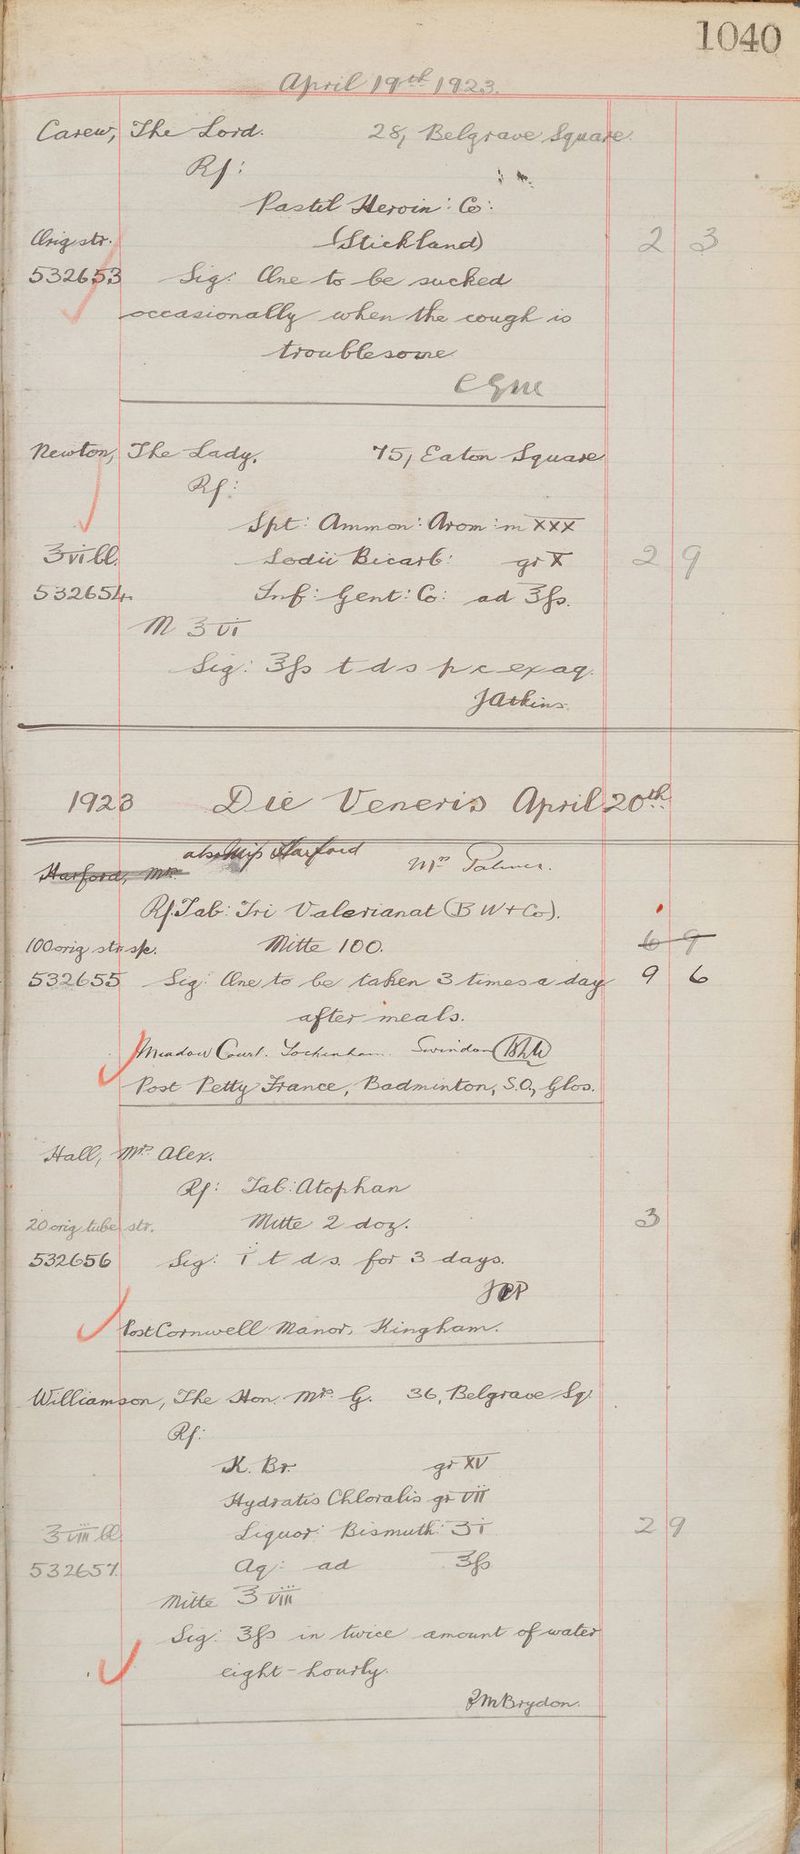 1040
April 19th 1923.
Carew, The Lord. 28, Belgrave Square.
Rx:
Pastil Heroin: Co:
Orig str. (Stickland) 2 3
532653 Sig: One to be sucked
occasionally when the cough is
troublesome
Newton, The Lady. 75, Eaton Square
Rx:
Spt: Ammon: Arom: m xxx
℥vi bl. Sodii Bicarb: gr x 2 9
532654 Inf: Gent: Co: ad ℥fs.
M ℥vi
Sig: ℥fs t d s p c ex aq.
JAtkins.
1923 Die Veneris April 20th
Harford, Mrs. also Miss Harford Mrs Palmer.
Rx. Tab: Tri Valerianat (B W + Co).
100 orig str sp. Mitte 100. 6 9
532655 Sig: One to be taken 3 times a day 9 6
after meals.
Meadow Court. Lockenham. Swindon
Post Petty France, Badminton, S.O, Glos.
Hall, Mrs. Alex.
Rx: Tab: Atophan
20 orig tube str. Mitte 2 doz. 3
532656 Sig: i t d s. for 3 days.
JCP
Post Cornwell Manor, Kingham.
Williamson, The Hon. Mrs. G. 36, Belgrave Sq.
Rx:
K. Br. gr xv
Hydratis Chloralis gr vii
℥viii bl. Liquor: Bismuth: ʒi 2 9
532657. Aq: ad ℥fs
Mitte ℥viii
Sig: ℥fs in twice amount of water
eight-hourly.
JMBrydon.